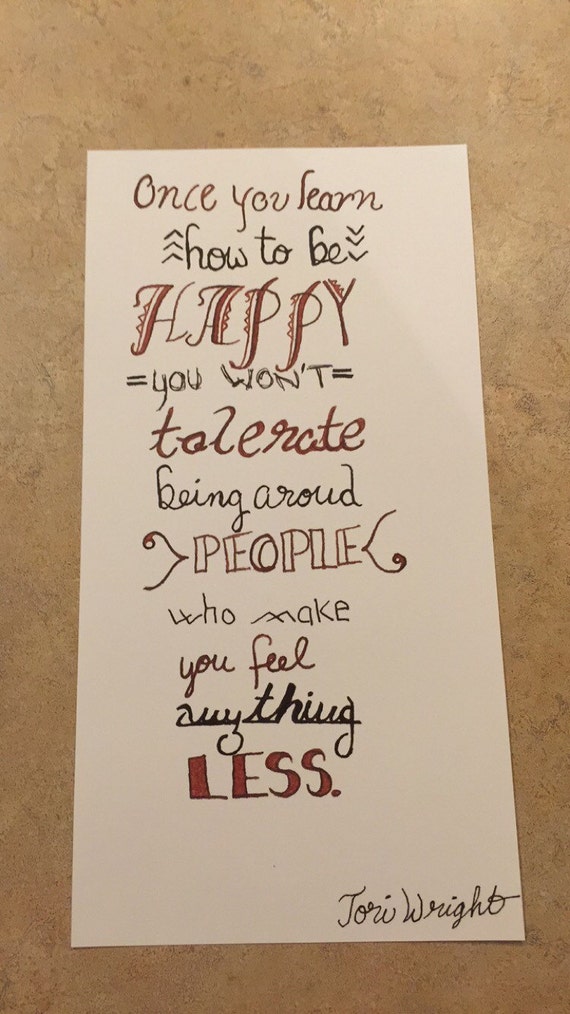 Once you learn
how to be
HAPPY
=you WON'T=
tolerate
being aroud
PEOPLE
who make
you feel
anything
LESS.
Tori Wright